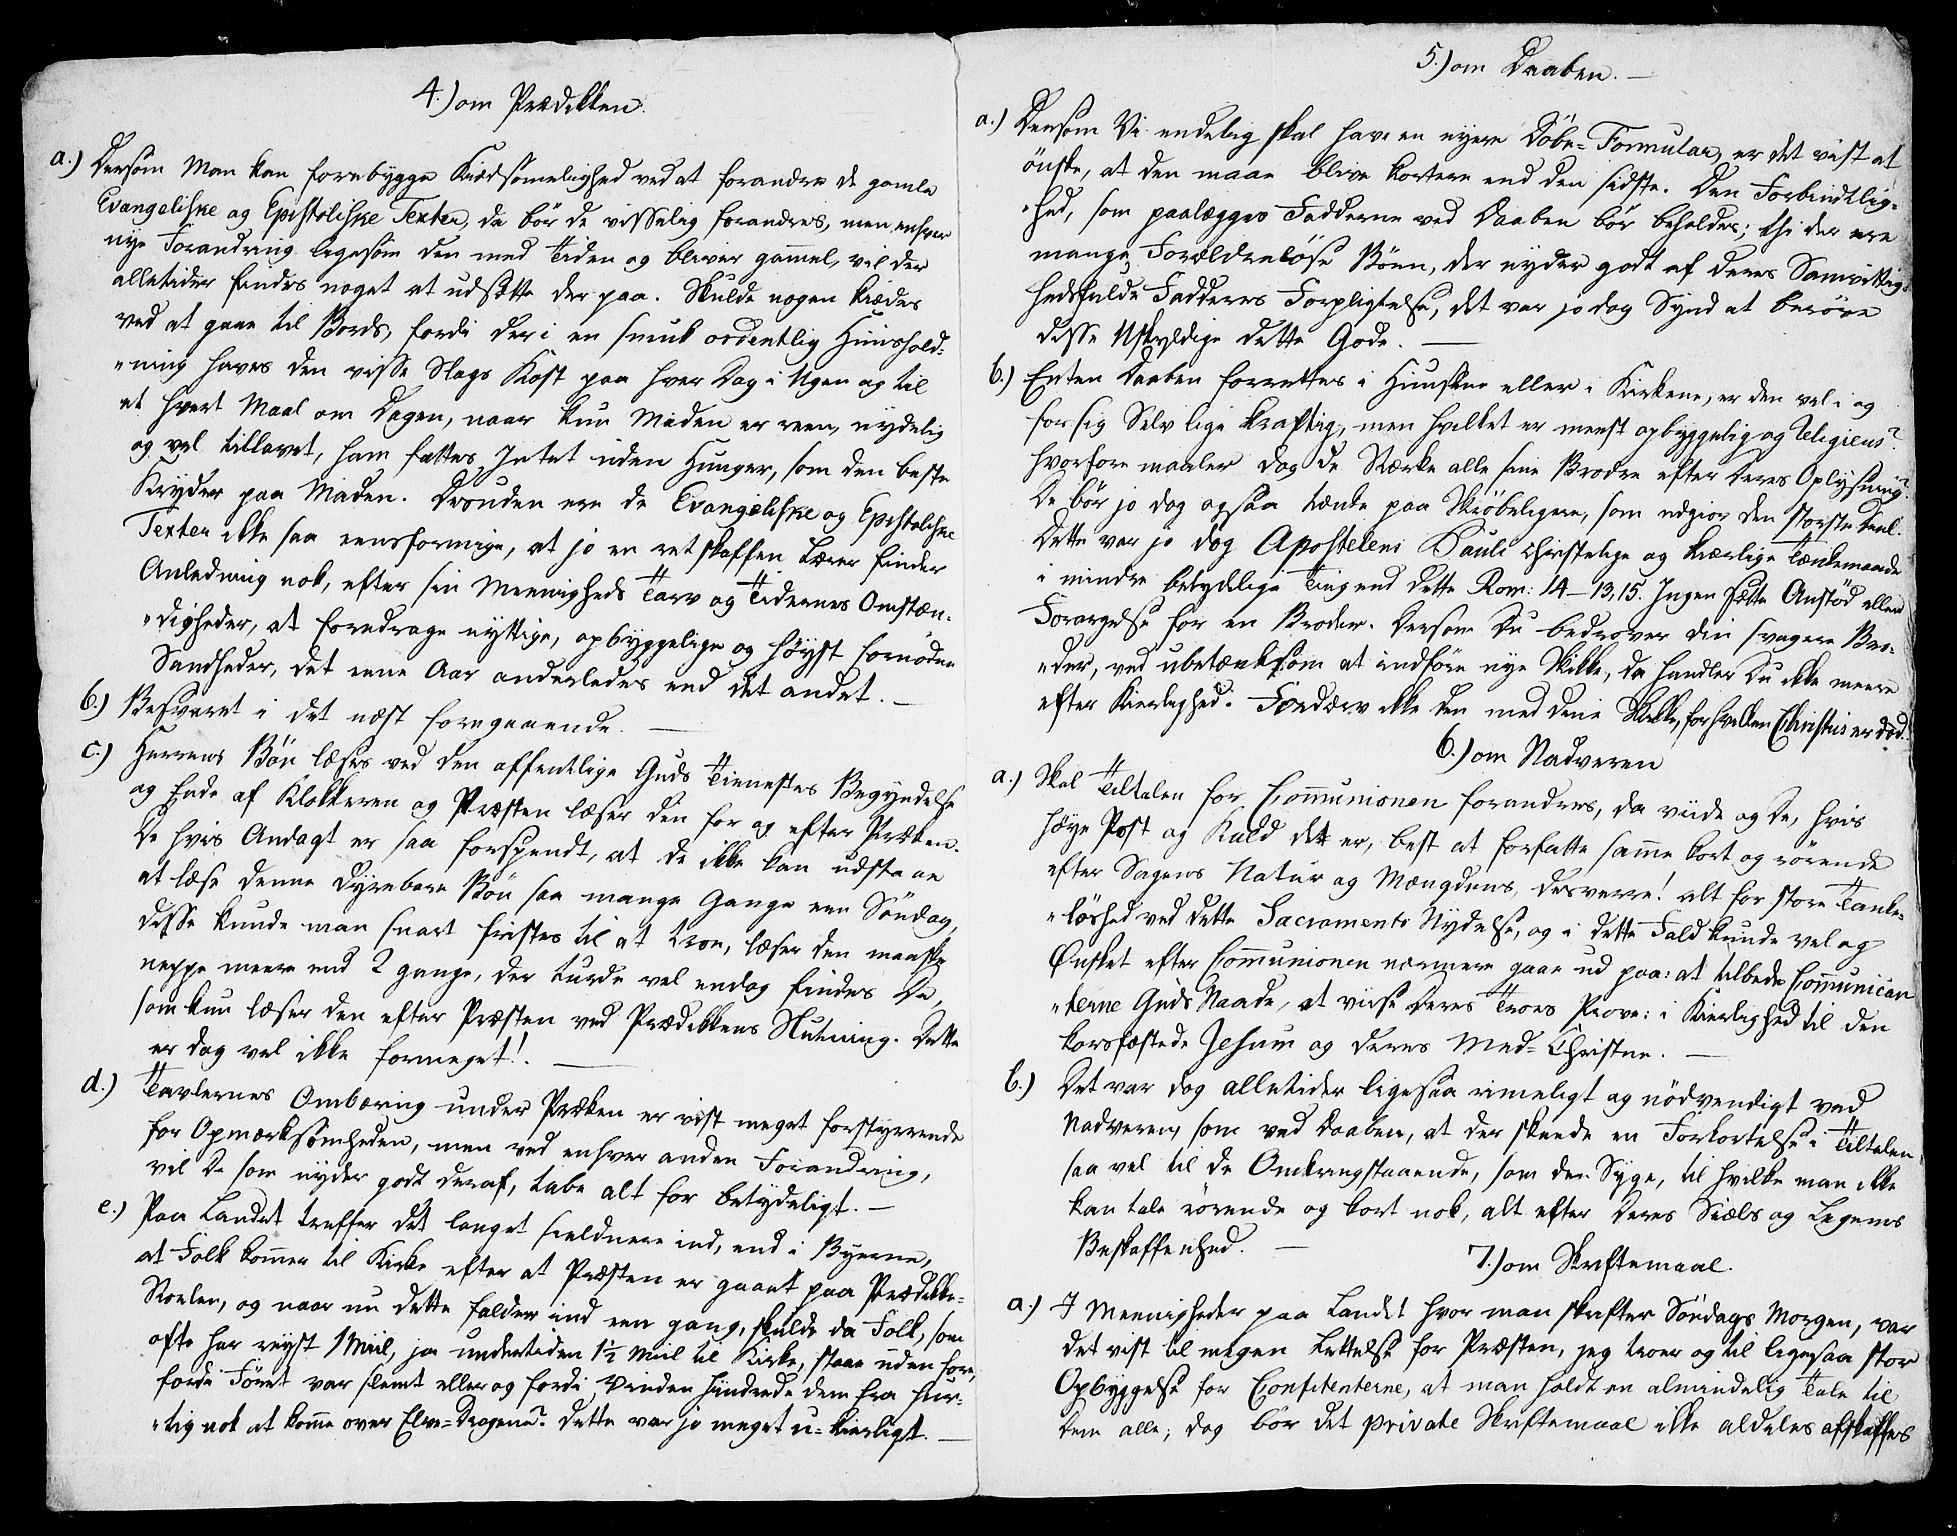 4.) om Prædikken.
a.) Dersom Man kan forebygge Kiædsomelighed ved at forandre de gamle
Evangeliske og Epistoliske Texter, da bör de visselig forandres, men enhver
nye Forandring ligesom den med Tiden og bliver gammel, vil der
alletider findes noget at udsætte der paa. Skulde nogen kiædes
ved at gaae til Bords, fordi der i en smuk ordentlig Huushold-
"ning haves den visse Slags Kost paa hver Dag i Ugen og til
et hvert Maal om Dagen, naar kun Maden er reen, nydelig
og vel tillavet, ham fattes Intet uden Hunger, som den beste
Kryder paa Maden. Desuden ere de Evangeliske og Epistoliske
Texter ikke saa eensformige, at jo en retskaffen Lærer finder
Anledning nok, efter sin Meenigheds Tarv og Tidernes Omstæn-
"digheder, at foredrage nyttige, opbyggelige og høyst fornödne
Sandheder, det eene Aar anderledes end det andet. —
b.) Besvaret i det næst foregaaende. —
c.) Herrens Bön læses ved den offentlige Guds Tienestes Begyndelse
og Ende af Klokkeren og Præsten læser den for og efter Præken.
De hvis Andagt er saa forspendt, at de ikke kan udstaae
at læse denne dyrebare Bön saa mange Gange een Söndag,
disse kunde man snart fristes til at troe, læser den maaskee
neppe meere end 2 gange, der turde vel endog findes De,
som kun læser den efter Præsten ved Prædikkens Slutning. Dette
er dog vel ikke formeget! —
d.) Tavlernes Ombæring under Præken er vist meget forstyrrende
for Opmærksomheden, men ved enhver anden Forandring,
vil De som nyder godt deraf, tabe alt for betydeligt. —
e.) Paa Landet treffer det langet sieldnere ind, end i Byerne,
at Folk kommer til Kirke efter at Præsten er gaaet paa Prædikke-
Stoelen, og naar nu dette falder ind een gang, skulde da Folk, som
ofte har reyst 1 Miil, ja undertiden 1½ Miil til Kirke, staae uden fore,
fordi Föret var slemt eller og fordi Vinden hindrede dem fra hur-
"tig nok at komme over Elve-Dragene? Dette var jo meget u-kierligt. —
5.) om Daaben. —
a.) Dersom Vi endelig skal have en nyere Döbe-Formular, er det vist at
önske, at den maae blive kortere end den sidste. Den Forbindtlig-
"hed, som paalægges Fadderne ved Daaben bör beholdes; thi der ere
mange Forældrelöse Börn, der nyder godt af deres Samvittig-
hedsfulde Fadderes Forpligtelse, det var jo dog Synd at beröve
disse Uskyldige dette Gode. —
b.) Enten Daaben forrettes i Huusene eller i Kirkene, er den vel i og
for sig Selv lige kraftig, men hvilket er meest opbyggelig og Religieus?
hvorfore maaler dog de Stærke alle sine Brødre efter deres Oplysning?
De bör jo dog ogsaa tænke paa Skröbeligere, som udgior den største Deel.
Dette var jo dog Apostelens Pauli christelige og kierlige Tænkemaade
i mindre betydelige Ting end dette Rom: 14-13, 15. Ingen sette Anstöd eller
Forargelse for en Broder. Dersom Du bedrøver din svagere Bro-
"der, ved ubetænksom at indföre nye Skikke, da handler Du ikke meere
efter Kierlighed. Fordærv ikke den med dine Skikke, for hvilken Christus er död.
6.) om Nadveren
a.) Skal Tiltalen for Communionen forandres, da viide og De, hvis
höye Post og Kald det er, best at forfatte samme kort og rörende
efter Sagens Natur og Mængdens, desverre! alt for store Tanke-
"löshed ved dette Sacraments Nydelse, og i dette Fald kunde vel og
Önsket efter Communionen nærmere gaae ud paa: at tilbede Communican
"terne Guds Naade, at viise deres Troes Prøve: i Kierlighed til den
korsfæstede Jesum og deres Med-Christne. —
b.) Det var dog alletider ligesaa rimeligt og nödvendigt ved
Nadveren, som ved Daaben, at der skeede en Forkortelse i Tiltalen
saa vel til de Omkringstaaende, som den Syge, til hvilke man ikke
kan tale rörende og kort nok, alt efter deres Siæls og Legems
Beskaffenhed. —
7.) om Skriftemaal.
a.) I Meenigheder paa Landet hvor man skrifter Söndags Morgen, var
det vist til megen Lettelse for Præsten, jeg troer og til ligesaa stor
Opbyggelse for Confitenterne, at man holdt en almindelig Tale til
dem alle; dog bör det private Skriftemaal ikke aldeles afskaffes